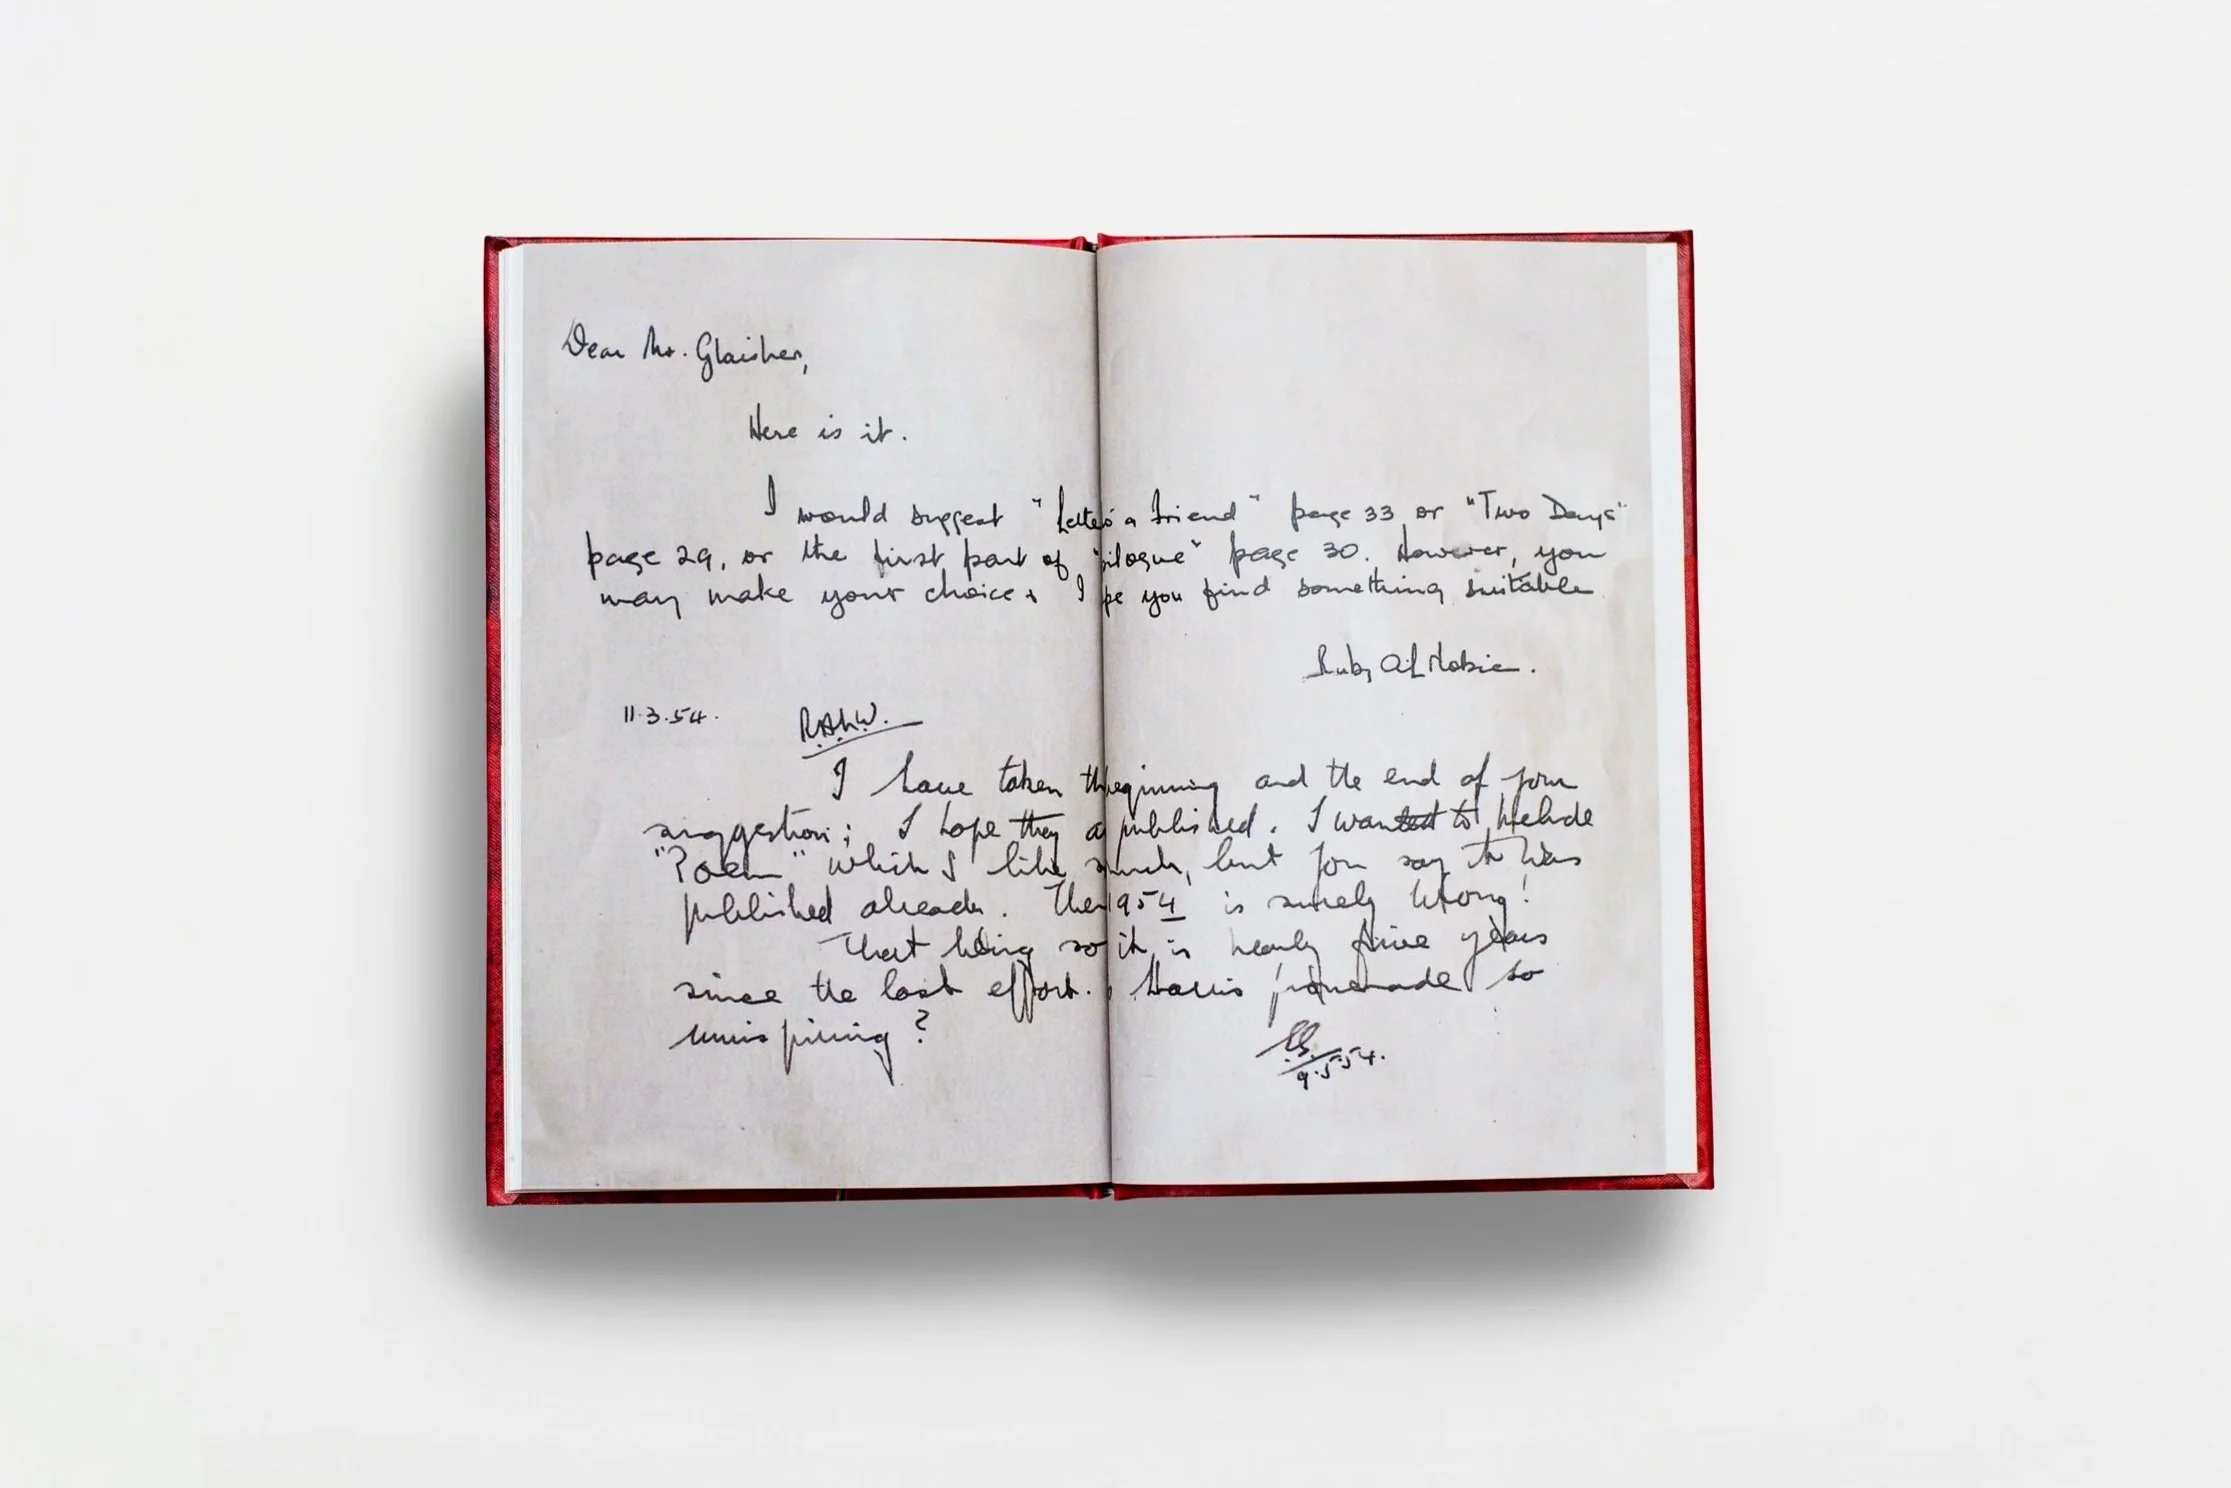 Dear Mr. Glaisher,
Here is it.
I would suggest "Letter a friend" page 33 or "Two Days"
page 29, or the first part of "ilogue" page 30. However, you
may make your choice & I pe you find something suitable
Ruby
11.3.54.
R.A.L.W.
I have taken th beginning and the end of your
suggestion; I hope they a published. I wanted to include
"Poem" which I like much, but you say it was
published already. The 1954 is surely wrong!
That being so it is nearly five years
since the last effort. promenade so
uninspiring?
9.5.54.